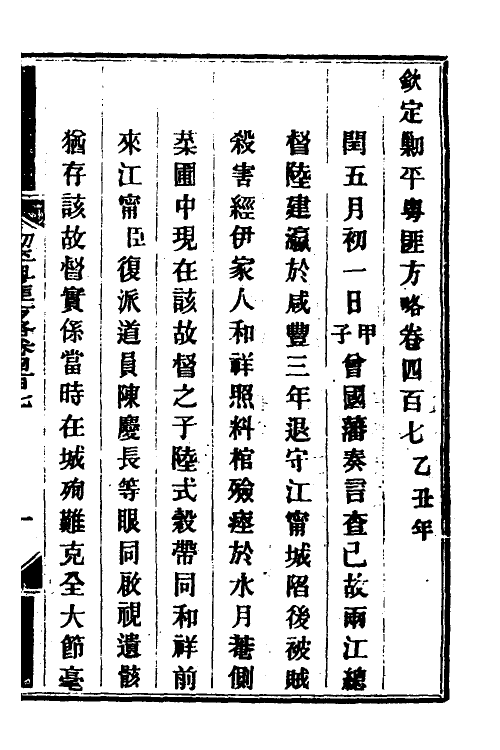 欽定勦平粵匪方略卷四百七 乙丑年
閏五月初一日甲子曾國藩奏言查已故兩江總
督陸建瀛於咸豐三年退守江甯城陷後被賊
殺害經伊家人和祥照料棺殮瘞於水月菴側
菜圃中現在該故督之子陸式穀帶同和祥前
來江甯臣復派道員陳慶長等眼同啟視遺骸
猶存該故督實係當時在城殉難克全大節毫